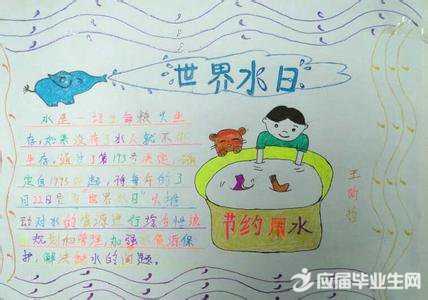 世界水日
水是一切生命赖以生
存,如果没有了水人就不能
生存,
第193号决定,
定自1993年起,将每年的3
月22日 世界水日"
动对水的资源进行综合性统
规划和管理,加强水资源保
护,解决 水的问题。
节约用水
王
应届毕业生网
YJBYS.COM